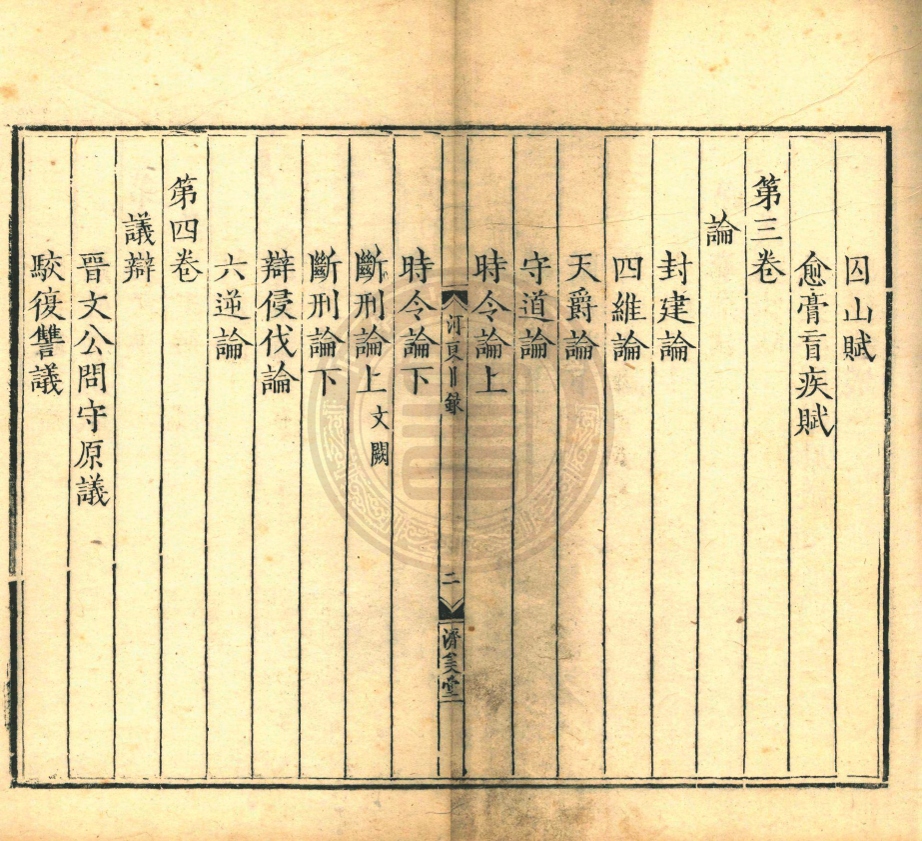 囚山賦
愈膏肓疾賦
第三卷
論
封建論
四維論
天爵論
守道論
時令論上
河東目錄
二
濟美堂
時令論下
斷刑論上 文闕
斷刑論下
辯侵伐論
六逆論
第四卷
議辯
晉文公問守原議
駮復讐議